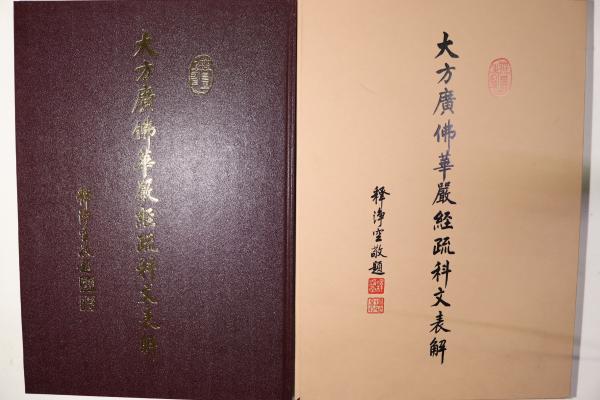 大方廣佛華嚴經疏科文表解
釋淨空敬題
大方廣佛華嚴經疏科文表解
釋淨空敬題